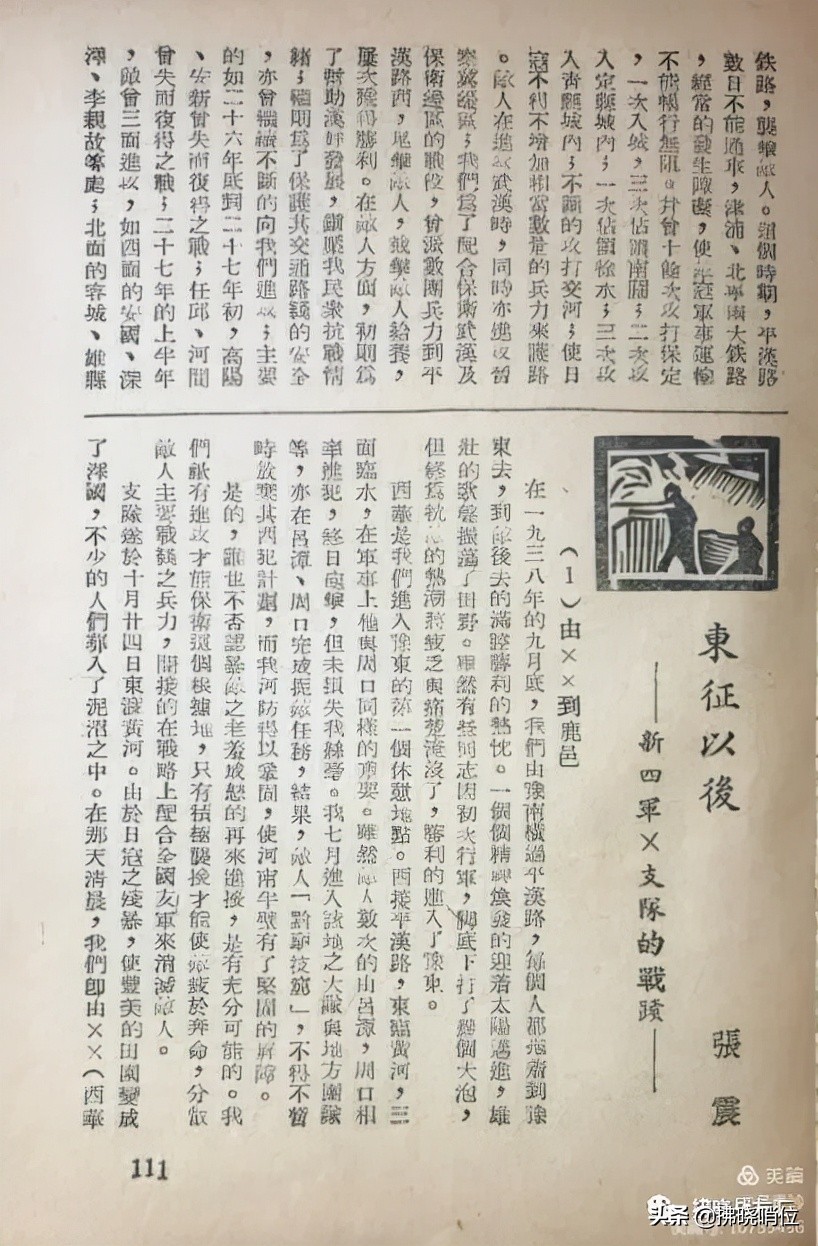 鉄路，襲擊敵人。這個時期，平漢路
數日不能通車，津浦、北寧兩大鉄路
，經常的發生障礙，使日寇軍事運輸
不能暢行無阻。并曾十餘次攻打保定
，一次入城，三次佔領南關；二次攻
入定縣城內；一次佔領徐水；三次攻
入青縣城內；不斷的攻打交河；使日
寇不得不增加相當數量的兵力來護路
。敵人在進攻武漢時，同時亦進攻晉
察冀邊區；我們爲了配合保衛武漢及
保衛邊區的戰役，曾派數團兵力到平
漢路西，尾擊敵人，截擊敵人給養，
屢次獲得勝利。在敵人方面，初則爲
了幫助漢奸發展，鎮壓我民衆抗戰情
緒；繼則爲了保護其交通路綫的安全
，亦曾繼續不斷的向我們進攻；主要
的如二十六年底到二十七年初，高陽
、安新曾失而復得之戰；任邱、河間
曾失而復得之戰；二十七年的上半年
，敵曾三面進攻，如西面的安國、深
澤、李親故等處；北面的容城、雄縣
東征以後
——新四軍×支隊的戰蹟——
張震
（1）由××到鹿邑
在一九三八年的九月底，我們由豫南橫過平漢路，每個人都抱着到豫
東去，到敵後去的滿腔勝利的熱忱。一個個精神煥發的迎着太陽邁進，雄
壯的歌聲振蕩了田野。雖然有些同志因初次行軍，脚底下打了幾個大泡，
但終爲忱忱的熱潮將疲乏與痛楚淹沒了，勝利的進入了豫東。
西華是我們進入豫東的第一個休憇地點。西接平漢路，東臨黃河，三
面臨水，在軍事上他與周口同樣的重要。雖然敵人數次的由呂潭，周口相
率進犯，終日砲擊，但未損失我絲毫。我七月進入該地之大隊與地方團隊
等，亦在呂潭、周口完成扼敵任務，結果，敵人「黔驢技窮」，不得不暫
時放棄其西犯計劃，而我河防得以鞏固，使河南半壁有了堅固的屏障。
是的，誰也不否認暴敵之老羞成怒的再來進擾，是有充分可能的。我
們祇有進攻才能保衛這個根據地，只有積極襲擾才能使敵疲於奔命，分散
敵人主要戰綫之兵力，間接的在戰略上配合全國友軍來消滅敵人。
支隊遂於十月廿四日東渡黃河。由於日寇之殘暴，使豐美的田園變成
了澤國，不少的人們都入了泥沼之中。在那天清晨，我們卽由××（西華
111
天籟
头条 @拂晓哨位